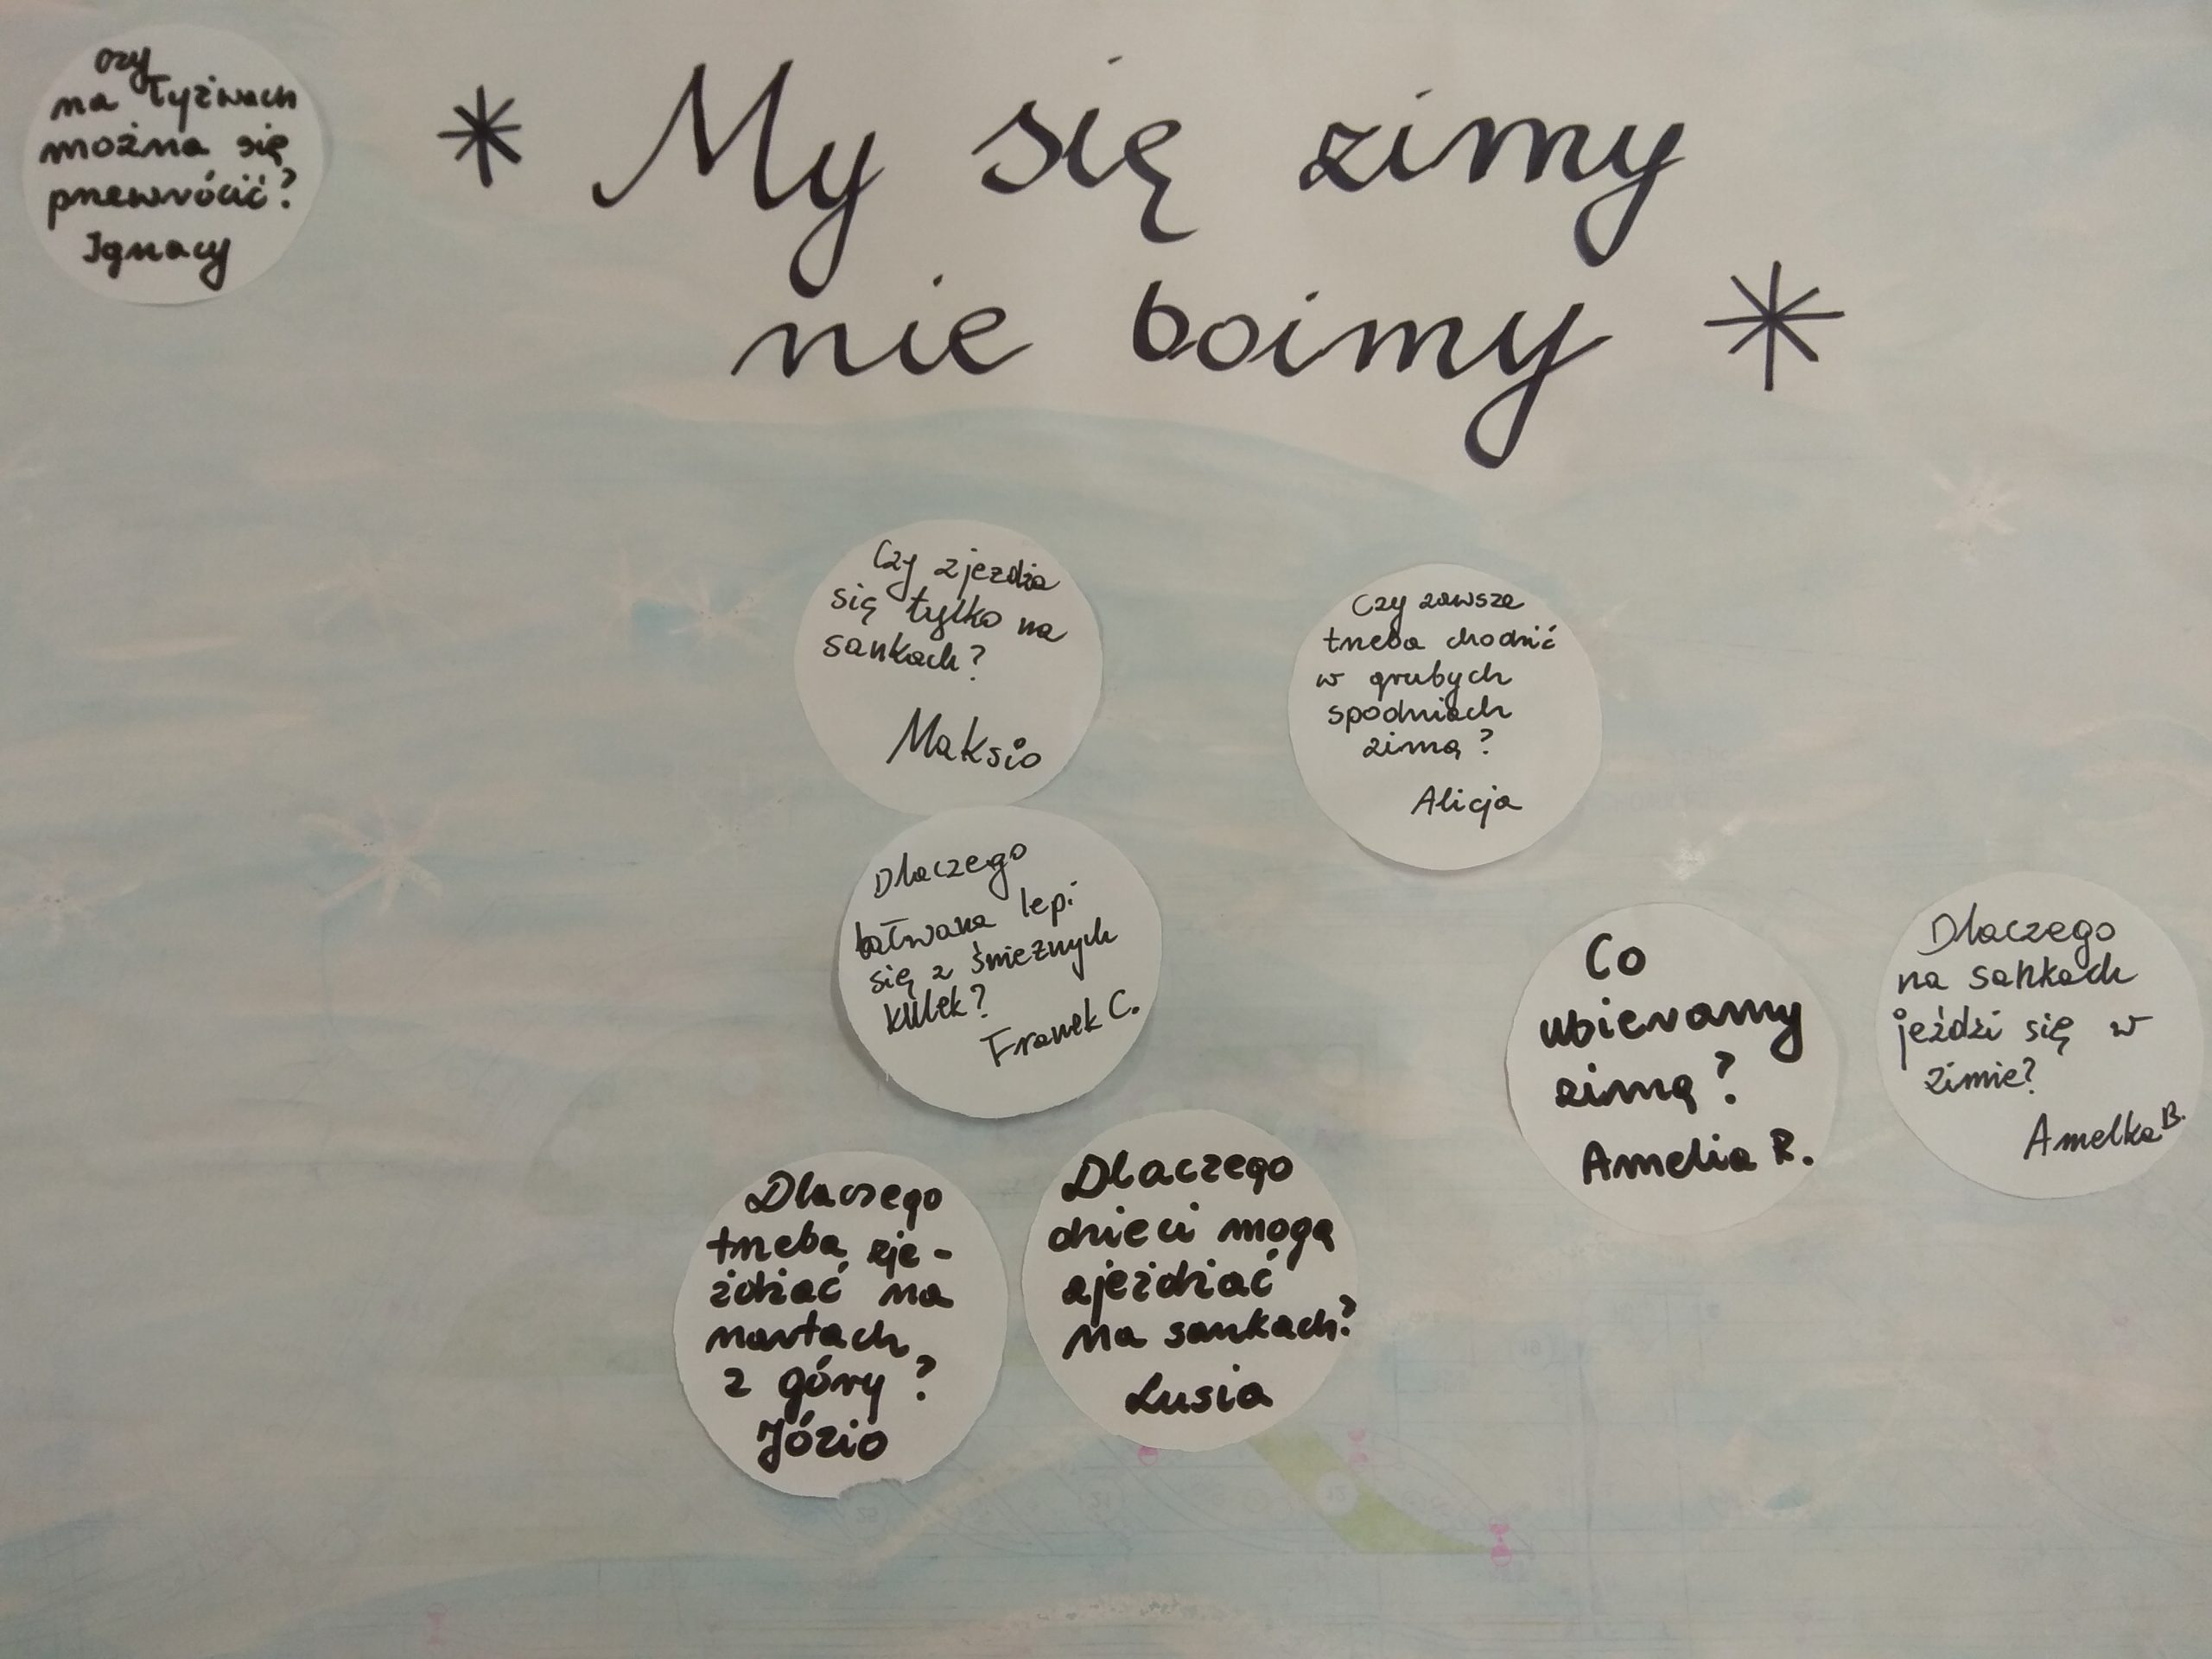 czy
na łyżwach
można się
przewrócić?
Ignacy
* My się zimy
nie boimy *
Czy zjeżdża
się tylko na
sankach?
Maksio
Czy zawsze
trzeba chodzić
w grubych
spodniach
zimą?
Alicja
Dlaczego
bałwana lepi
się z śnieżnych
kulek?
Franek C.
Co
ubieramy
zimą?
Amelia R.
Dlaczego
na sankach
jeździ się w
zimie?
Amelka B.
Dlaczego
trzeba zje-
żdżać na
nartach
z góry?
Józio
Dlaczego
dzieci mogą
zjeżdżać
na sankach?
Lusia